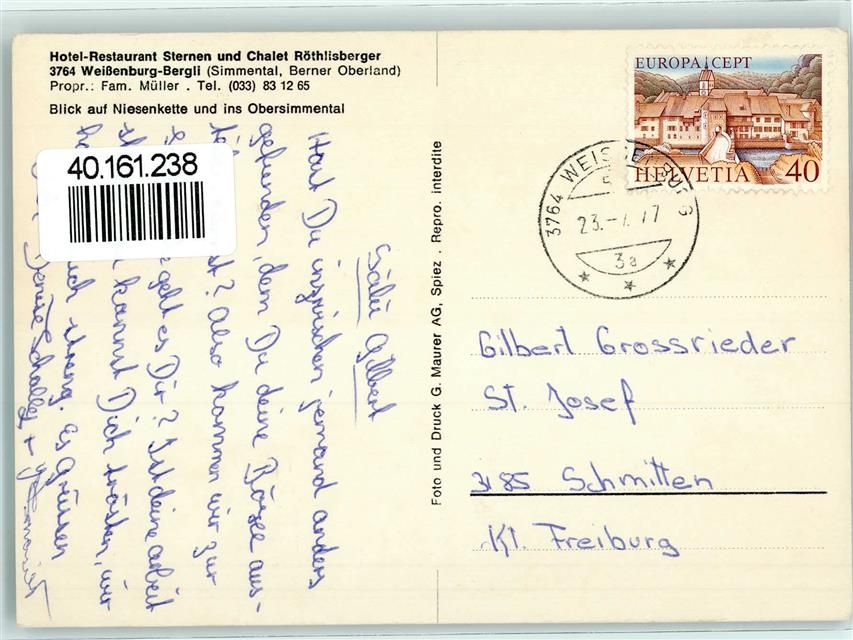 Hotel-Restaurant Sternen und Chalet Röthlisberger
3764 Weißenburg-Bergli (Simmental, Berner Oberland)
Propr.: Fam. Müller . Tel. (033) 83 12 65
Blick auf Niesenkette und ins Obersimmental
40.161.238
Salü Gilbert
Hast Du inzwischen jemand anders
gefunden, dem Du deine Börse aus-
? Also kommen wir zur
geht es Dir? Ist deine Arbeit
kannst Dich trösten, wir
streng. Es Grüssen
Schaller +
Foto und Druck G. Maurer AG, Spiez . Repro. interdite
EUROPA CEPT
HELVETIA 40
3764 WEISSENBURG
23.-7.77
3a
Gilbert Grossrieder
St. Josef
3185 Schmitten
Kt. Freiburg